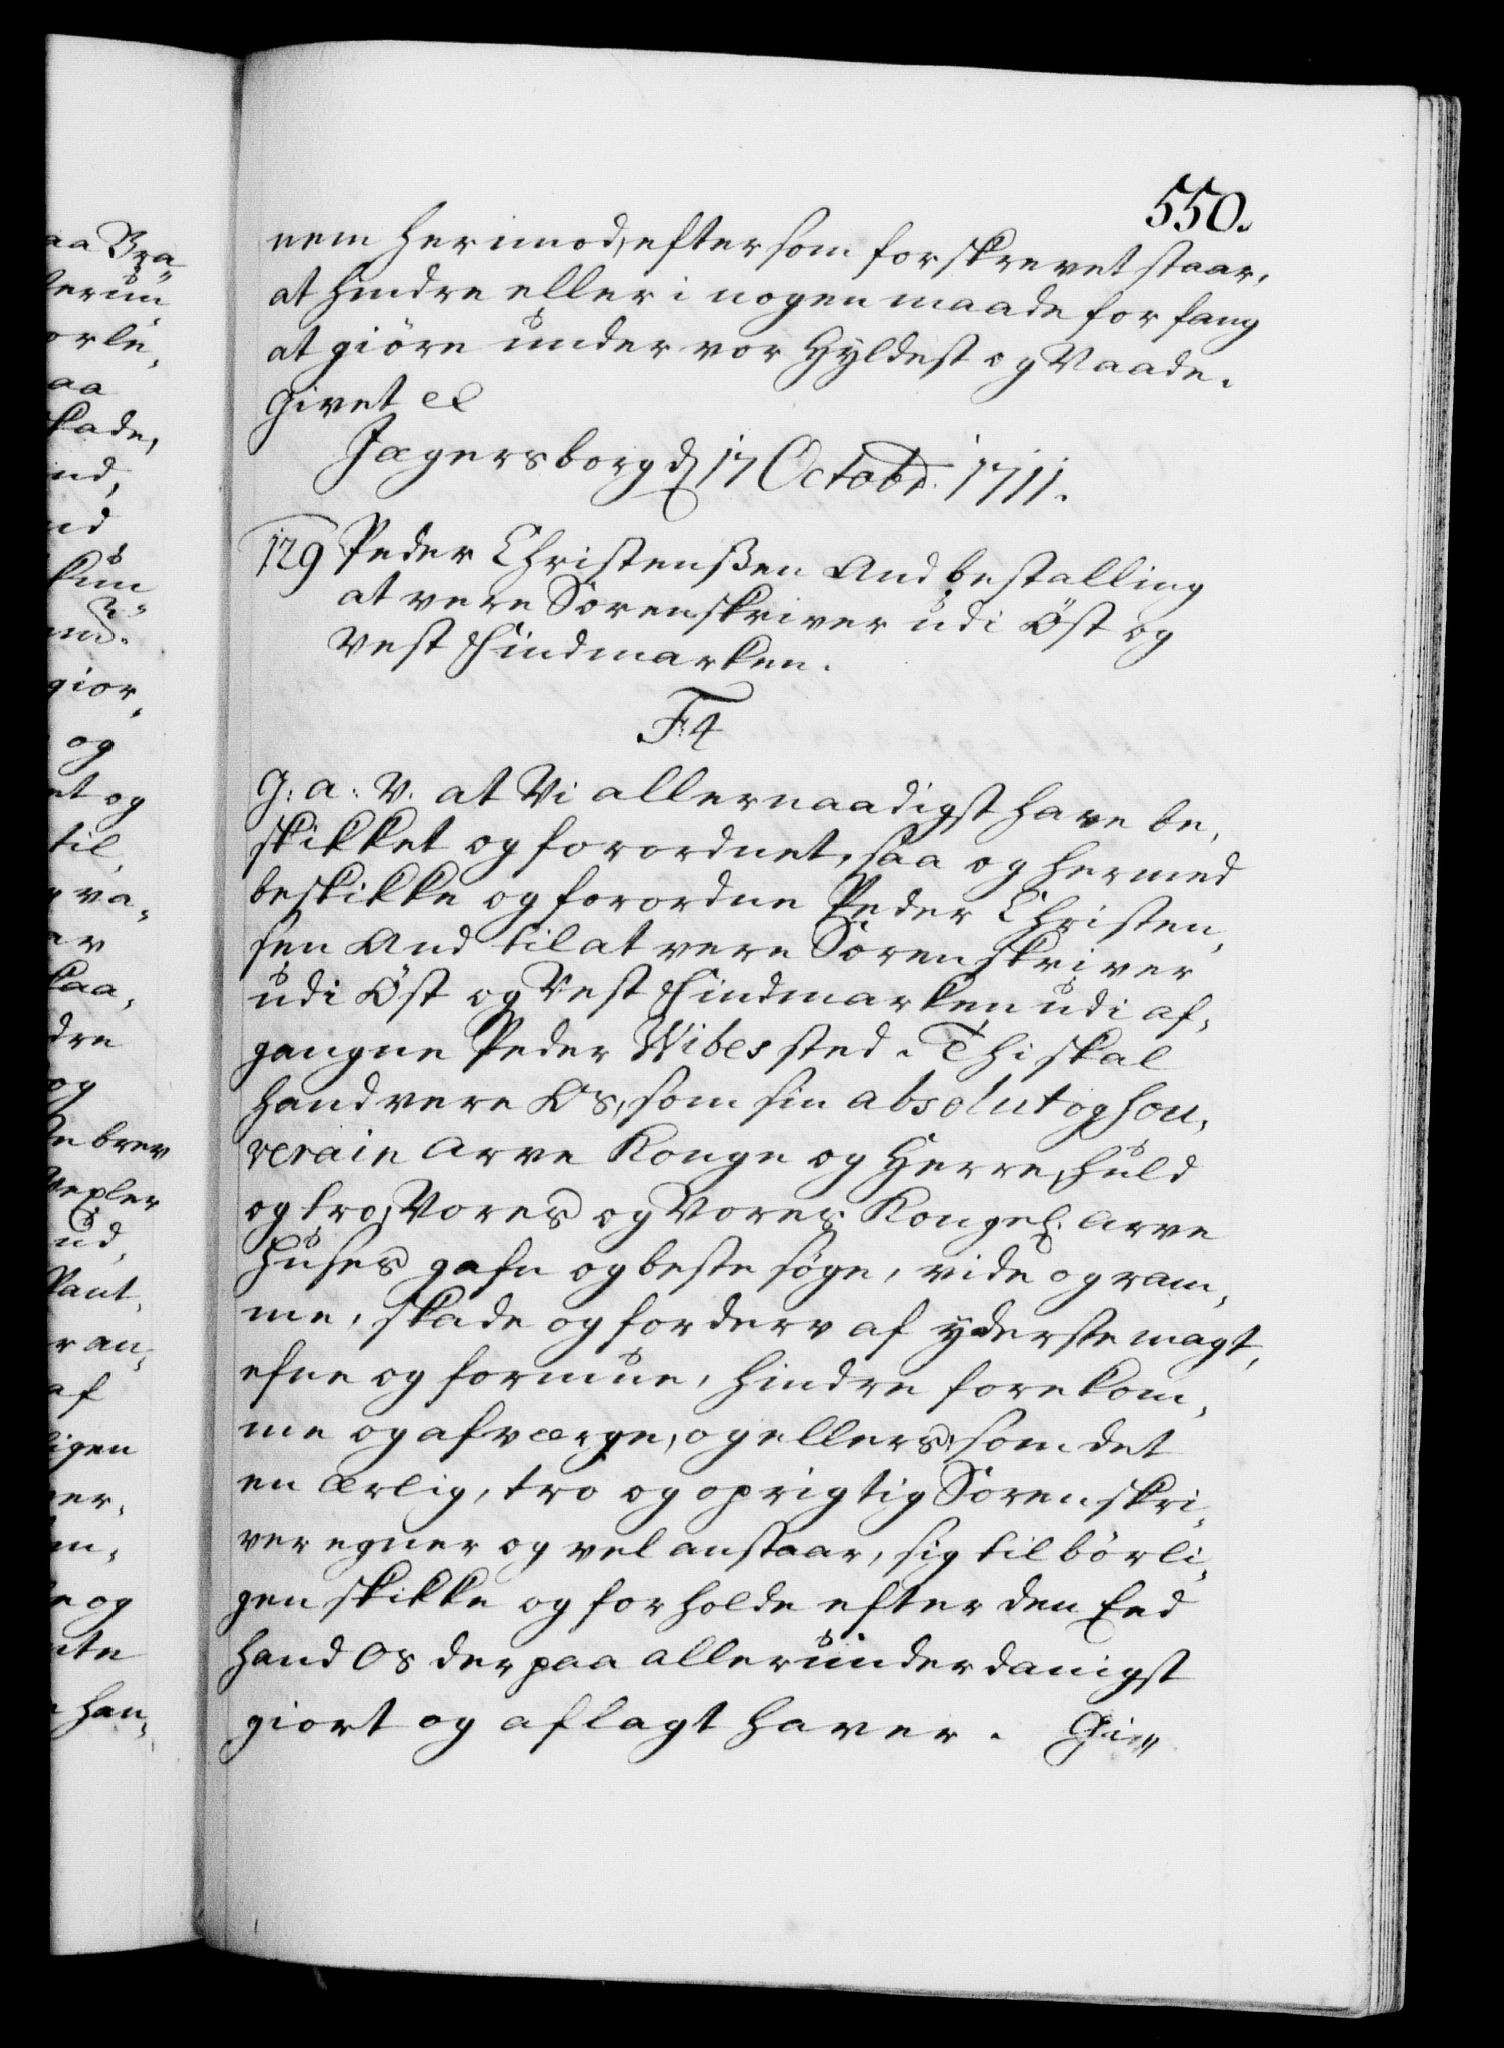 550.
nem herimod, eftersom forskrevet staar,
at hindre eller i nogen maade forfang
at giöre under vor Hyldest og Naade.
Givet etc
Jægersborg d 17 Octobr. 1711.
129 Peder Christenßen And bestalling
at være Sorenskriver udi Öst og
Vest Findmarken.
F4
G: a: V. at Vi allernaadigst have be,
skikket og forordnet, saa og hermed
beskikke og forordne Peder Christen,
sen And til at være Sorenskriver
udi Öst og Vest Findmarken udi af,
gangne Peder Wibes sted. Thi skal
hand være Os, som sin absolut og sou,
verain Arve Konge og Herre, huld
og tro, Vores og Vores Kongel. Arve
Huses gafn og beste søge, vide og ram,
me, skade og forderv af yderste magt,
efne og formue, hindre forekom,
me og afværge, og ellers, som det
en ærlig, tro og oprigtig Sorenskri,
ver egner og vel anstaar, sig tilbörli,
gen skikke og forholde efter den Eed
hand Os derpaa allerunderdanigst
giort og aflagt haver. Gi,,
aa Bra,
orle,
aa
skade,
ind,
nd
kun
gior,
og
et og
til,
va,
er
kaa,
dre
og
brev
ud,
Pant,
r an,
af
ligen
ver,
en,
og
han,